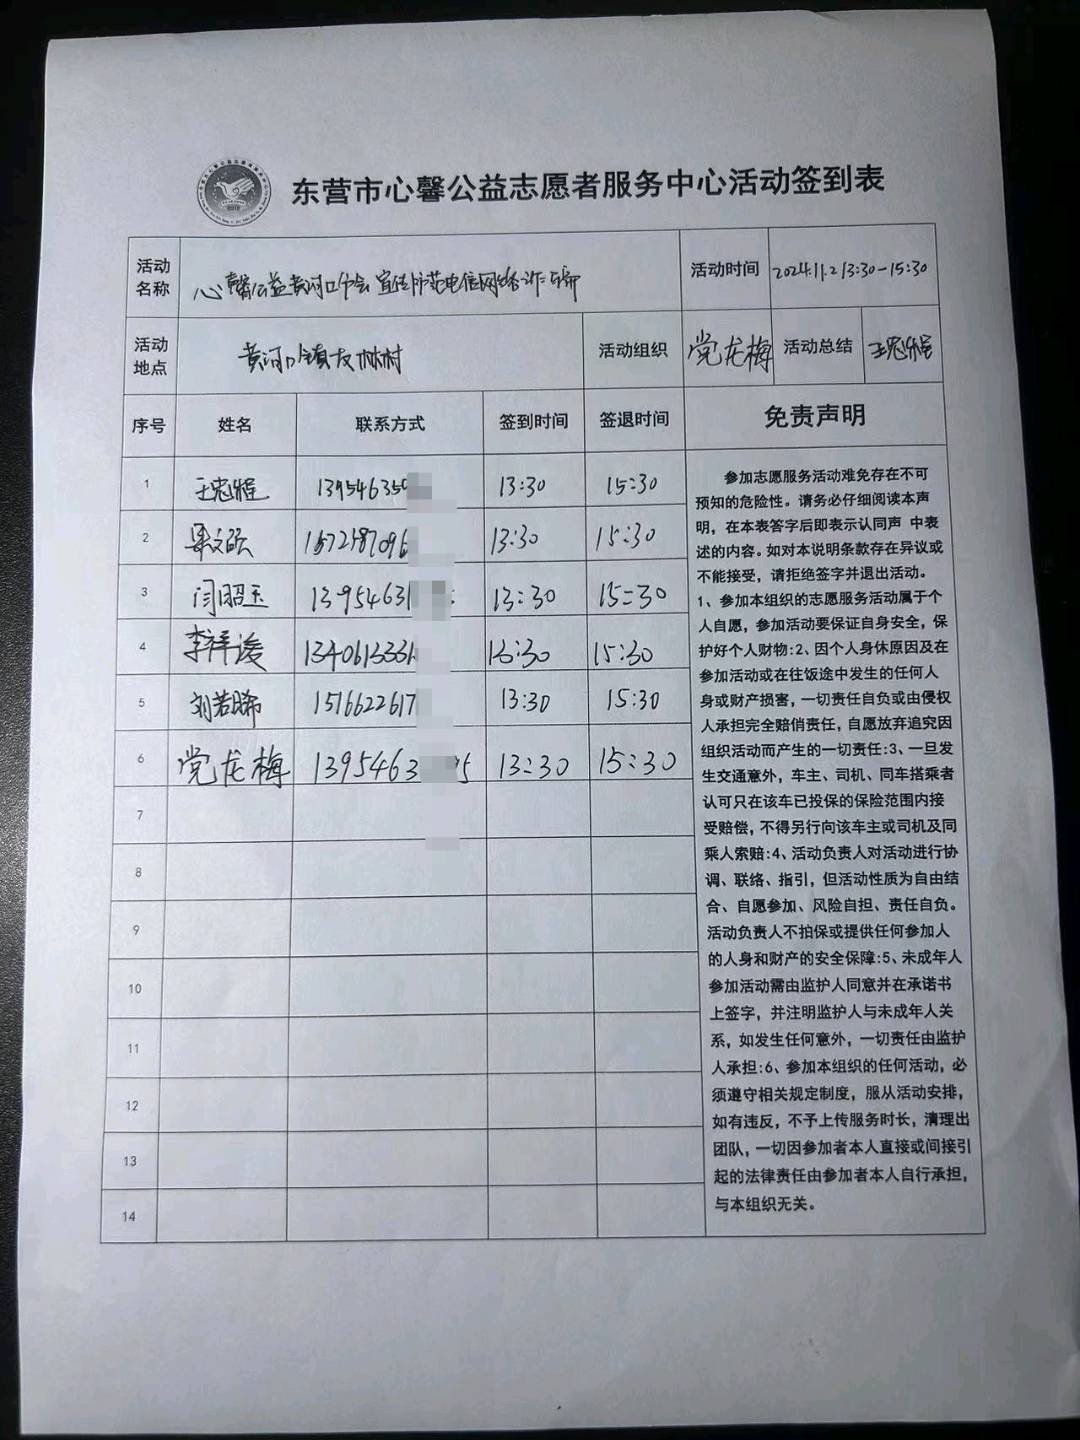 东营市心馨公益志愿者服务中心活动签到表
活动名称 心馨公益黄河口分会宣传防范电信网络诈骗 活动时间 2024.11.2 13:30-15:30
活动地点 黄河口镇友林村 活动组织 党龙梅 活动总结
序号 姓名 联系方式 签到时间 签退时间 免责声明
1 139546350 13:30 15:30
2 梁文欣 1572787096 13:30 15:30
3 闫昭玉 13954631 13:30 15:30
4 李祥凌 1340613331 13:30 15:30
5 刘若晞 1516622617 13:30 15:30
6 党龙梅 1395463 5 13:30 15:30
7
8
9
10
11
12
13
14
参加志愿服务活动难免存在不可
预知的危险性。请务必仔细阅读本声
明，在本表答字后即表示认同声 中表
述的内容。如对本说明条款存在异议或
不能接受，请拒绝签字并退出活动。
1、参加本组织的志愿服务活动属于个
人自愿，参加活动要保证自身安全，保
护好个人财物:2、因个人身休原因及在
参加活动或在往饭途中发生的任何人
身或财产损害，一切责任自负或由侵权
人承担完全赔偿责任，自愿放弃追究因
组织活动而产生的一切责任:3、一旦发
生交通意外，车主、司机、同车搭乘者
认可只在该车已投保的保险范围内接
受赔偿，不得另行向该车主或司机及同
乘人索赔:4、活动负责人对活动进行协
调、联络、指引，但活动性质为自由结
合、自愿参加、风险自担、责任自负。
活动负责人不拍保或提供任何参加人
的人身和财产的安全保障:5、未成年人
参加活动需由监护人同意并在承诺书
上签字，并注明监护人与未成年人关
系，如发生任何意外，一切责任由监护
人承担:6、参加本组织的任何活动，必
须遵守相关规定制度，服从活动安排，
如有违反，不予上传服务时长，清理出
团队，一切因参加者本人直接或间接引
起的法律责任由参加者本人自行承担，
与本组织无关。